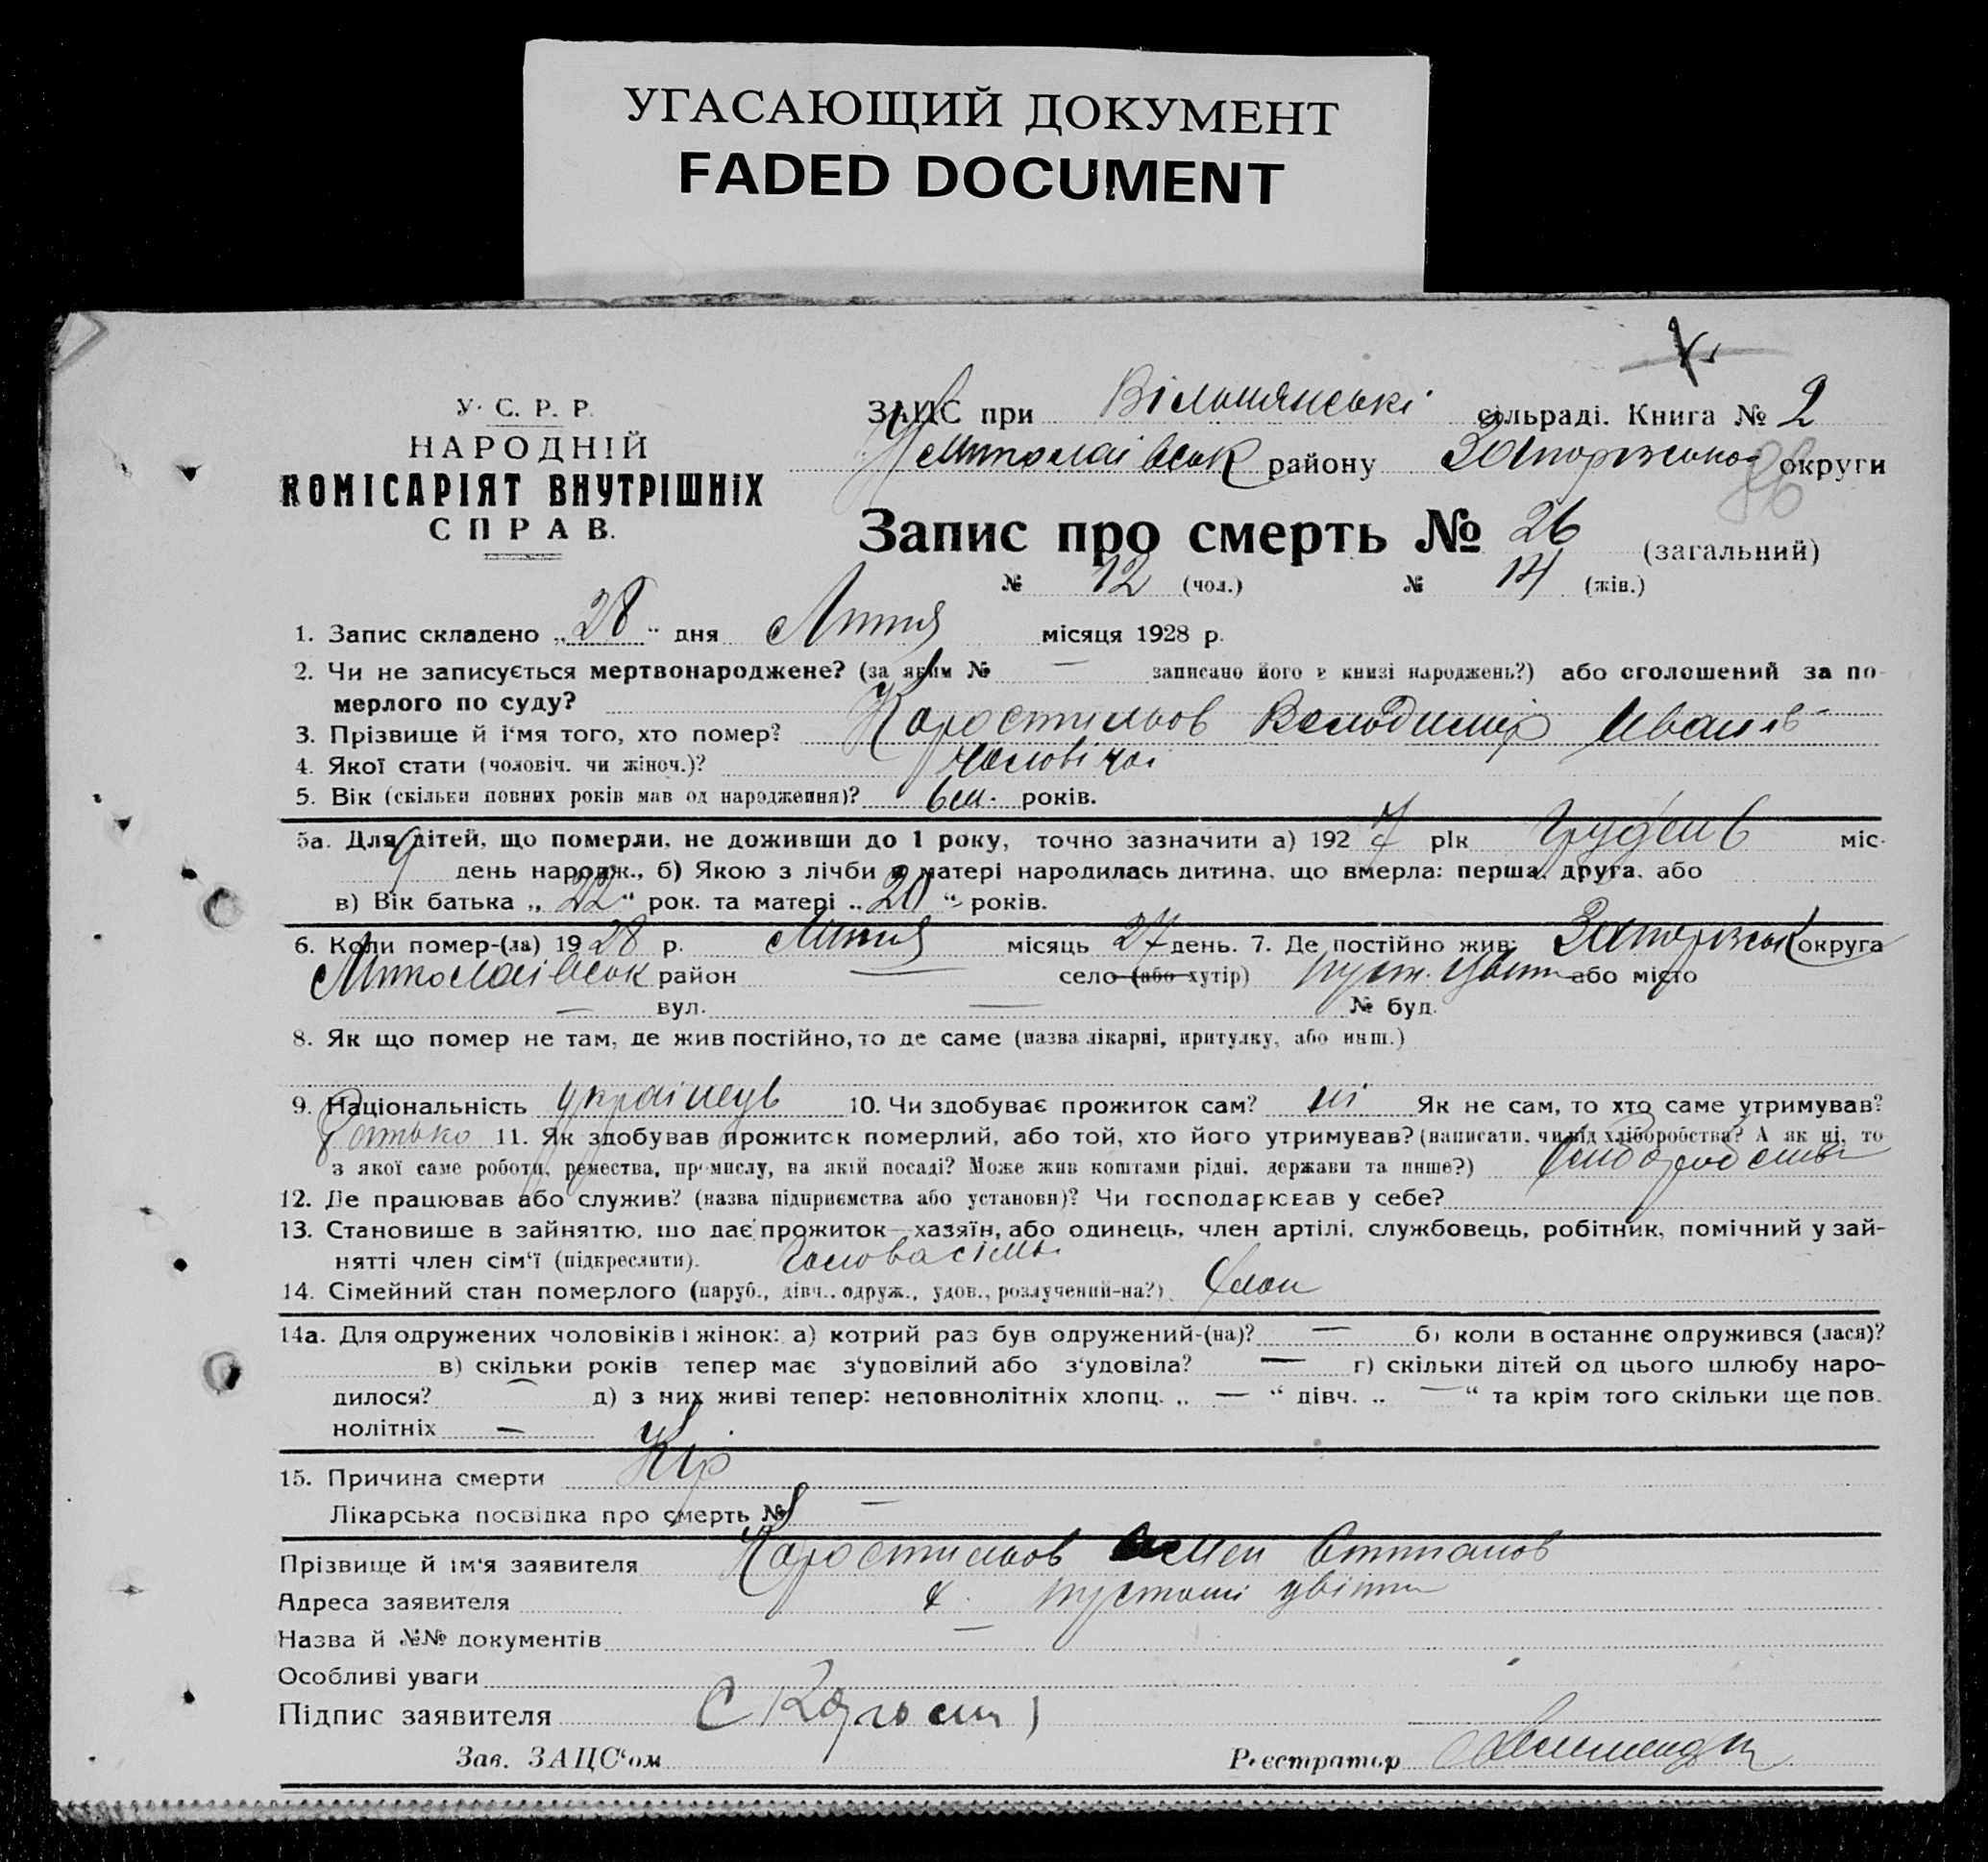 УГАСАЮЩИЙ ДОКУМЕНТ
FADED DOCUMENT
У. С. Р. Р.
НАРОДНІЙ
КОМІСАРІЯТ ВНУТРІШНІХ
СПРАВ.
ЗАЦС при Вільшянські сільраді. Книга № 2
Миколаівськ района Запоріжської округи
Запис про смерть № 26 (загальний)
№ 12 (чол.) № 14 (жін.)
1. Запис складено „28“ дня Липня місяця 1928 р.
2. Чи не записується мертвонароджене? (за яким № — записано його в книзі народжень?) або оголошений за по-
мерлого по суду?
3. Прізвище й і'мя того, хто помер? Каростильов Володимір Іванів
4. Якої стати (чоловіч. чи жіноч.)? Чоловічої
5. Вік (скільки повних років мав од народження)? 6 м. років.
5а. Для дітей, що померли, не доживши до 1 року, точно зазначити а) 1927 рік Грудень міс.
9 день народж., б) Якою з лічби в матері народилась дитина, що вмерла: перша, друга, або
в) Вік батька „22“ рок. та матері „20“ років.
6. Коли помер-(ла) 1928 р. Липня місяць 27 день. 7. Де постійно жив: Запоріжськ округа
Миколаівськ район — село (або хутір) пуст. Цвіт або місто
— вул. — № буд.
8. Як що помер не там, де жив постійно, то де саме (назва лікарні, притулку, або инш.)
9. Національність українець 10. Чи здобуває прожиток сам? ні Як не сам, то хто саме утримував?
Батько 11. Як здобував прожиток померлий, або той, хто його утримував? (написати, чи від хліборобства? А як ні, то
з якої саме роботи, ремества, промислу, на якій посаді? Може жив коштами рідні, держави та инше?)
12. Де працював або служив? (назва підприємства або установи)? Чи господарював у себе?
13. Становище в зайняттю, що дає прожиток—хазяїн, або одинець, член артілі, службовець, робітник, помічний у зай-
нятті член сім'ї (підкреслити). Голова сімь.
14. Сімейний стан померлого (паруб., дівч., одруж., удов., розлучений-на?)
14а. Для одружених чоловіків і жінок: а) котрий раз був одружений-(на)? — б) коли востаннє одружився (лася)?
в) скільки років тепер має з'удовілий або з'удовіла? — г) скільки дітей од цього шлюбу наро-
дилося? — д) з них живі тепер: неповнолітніх хлопц. „ — “ дівч. „ — “ та крім того скільки ще пов.
нолітніх —
15. Причина смерти Кір
Лікарська посвідка про смерть № —
Прізвище й ім'я заявителя Каростильов Степанов
Адреса заявителя х. пустоші цвіти
Назва й №№ документів —
Особливі уваги
Підпис заявителя С Карост
Зав. ЗАЦС'ом Реєстратор